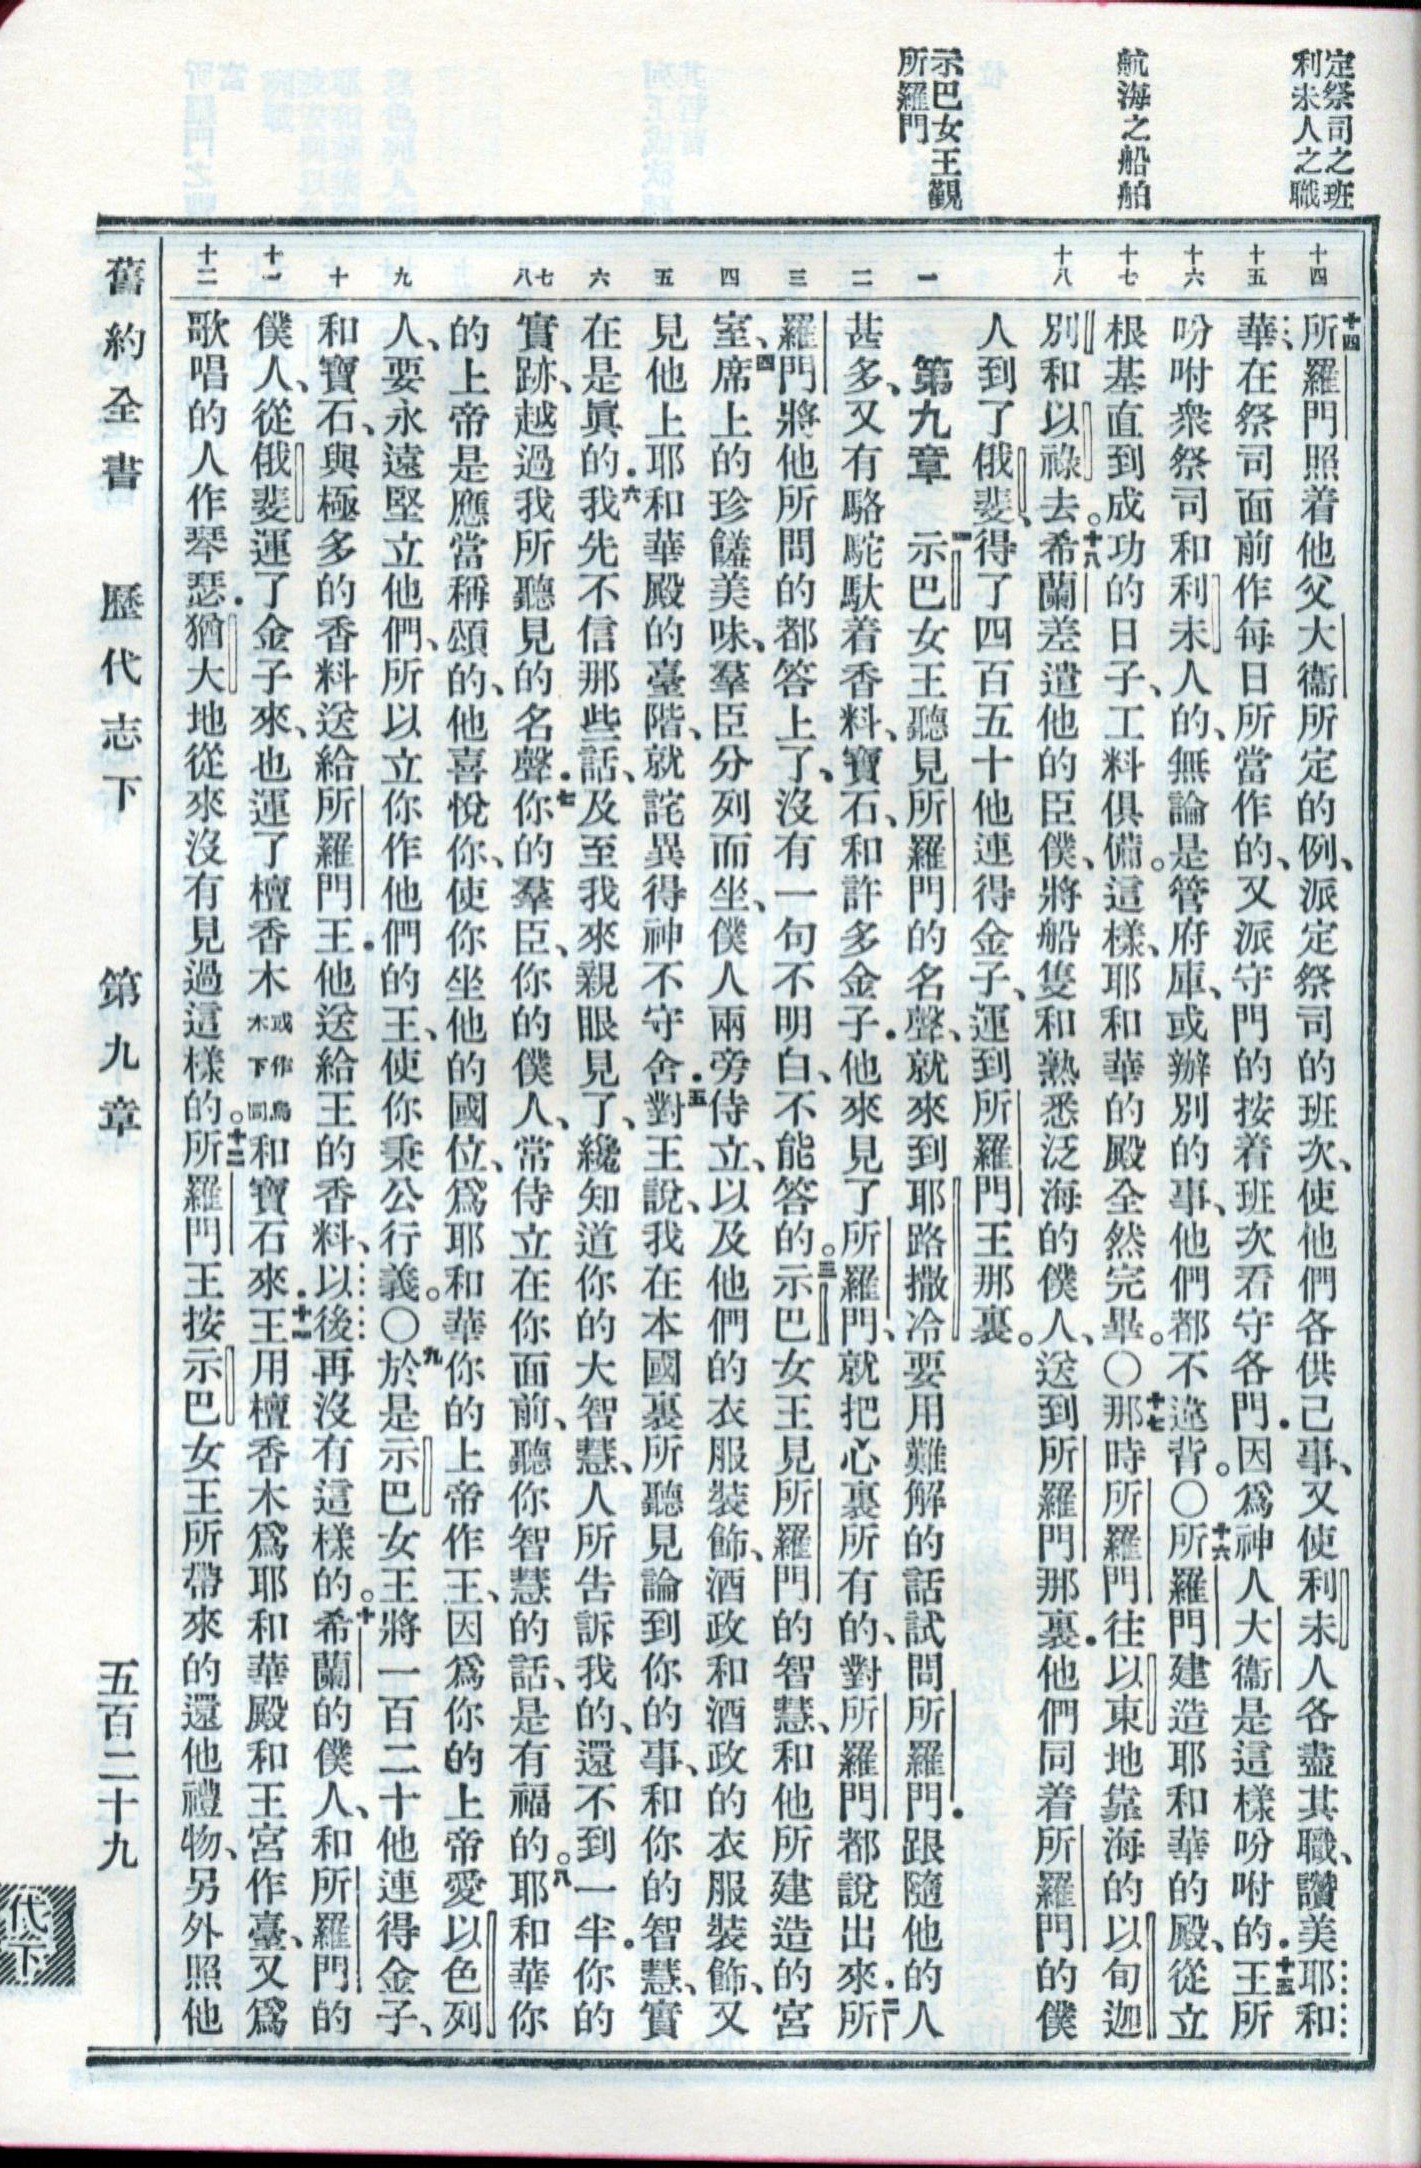 定祭司之班
利未人之職
航海之船舶
示巴女王觀
所羅門
十四
十五
十六
十七
十八
一
二
三
四
五
六
七
八
九
十
十一
十二
十四所羅門照着他父大衞所定的例、派定祭司的班次、使他們各供己事、又使利未人各盡其職、讚美耶和
華、在祭司面前作每日所當作的、又派守門的按着班次看守各門．因爲神人大衞是這樣吩咐的．十五王所
吩咐衆祭司和利未人的、無論是管府庫、或辦別的事、他們都不違背。〇十六所羅門建造耶和華的殿、從立
根基直到成功的日子、工料俱備。這樣、耶和華的殿全然完畢。〇十七那時所羅門往以東地靠海的以旬迦
別和以祿去。十八希蘭差遣他的臣僕、將船隻和熟悉泛海的僕人、送到所羅門那裏．他們同着所羅門的僕
人到了俄斐、得了四百五十他連得金子、運到所羅門王那裏。
第九章 一示巴女王聽見所羅門的名聲、就來到耶路撒冷、要用難解的話試問所羅門．跟隨他的人
甚多、又有駱駝馱着香料、寶石、和許多金子．他來見了所羅門、就把心裏所有的、對所羅門都說出來．二所
羅門將他所問的都答上了、沒有一句不明白、不能答的。三示巴女王見所羅門的智慧、和他所建造的宮
室、四席上的珍饈美味、羣臣分列而坐、僕人兩旁侍立、以及他們的衣服裝飾、酒政和酒政的衣服裝飾、又
見他上耶和華殿的臺階、就詫異得神不守舍．五對王說、我在本國裏所聽見論到你的事、和你的智慧、實
在是眞的．六我先不信那些話、及至我來親眼見了、纔知道你的大智慧、人所告訴我的、還不到一半．你的
實跡、越過我所聽見的名聲．七你的羣臣、你的僕人、常侍立在你面前、聽你智慧的話、是有福的。八耶和華你
的上帝是應當稱頌的、他喜悅你、使你坐他的國位、爲耶和華你的上帝作王、因爲你的上帝愛以色列
人、要永遠堅立他們、所以立你作他們的王、使你秉公行義。〇九於是示巴女王將一百二十他連得金子、
和寶石、與極多的香料送給所羅門王．他送給王的香料、以後再沒有這樣的。十希蘭的僕人、和所羅門的
僕人、從俄斐運了金子來、也運了檀香木或作烏木下同和寶石來．十一王用檀香木爲耶和華殿和王宮作臺、又爲
歌唱的人作琴瑟．猶大地從來沒有見過這樣的。十二所羅門王按示巴女王所帶來的還他禮物、另外照他
舊約全書 歷代志下 第九章 五百二十九
代下